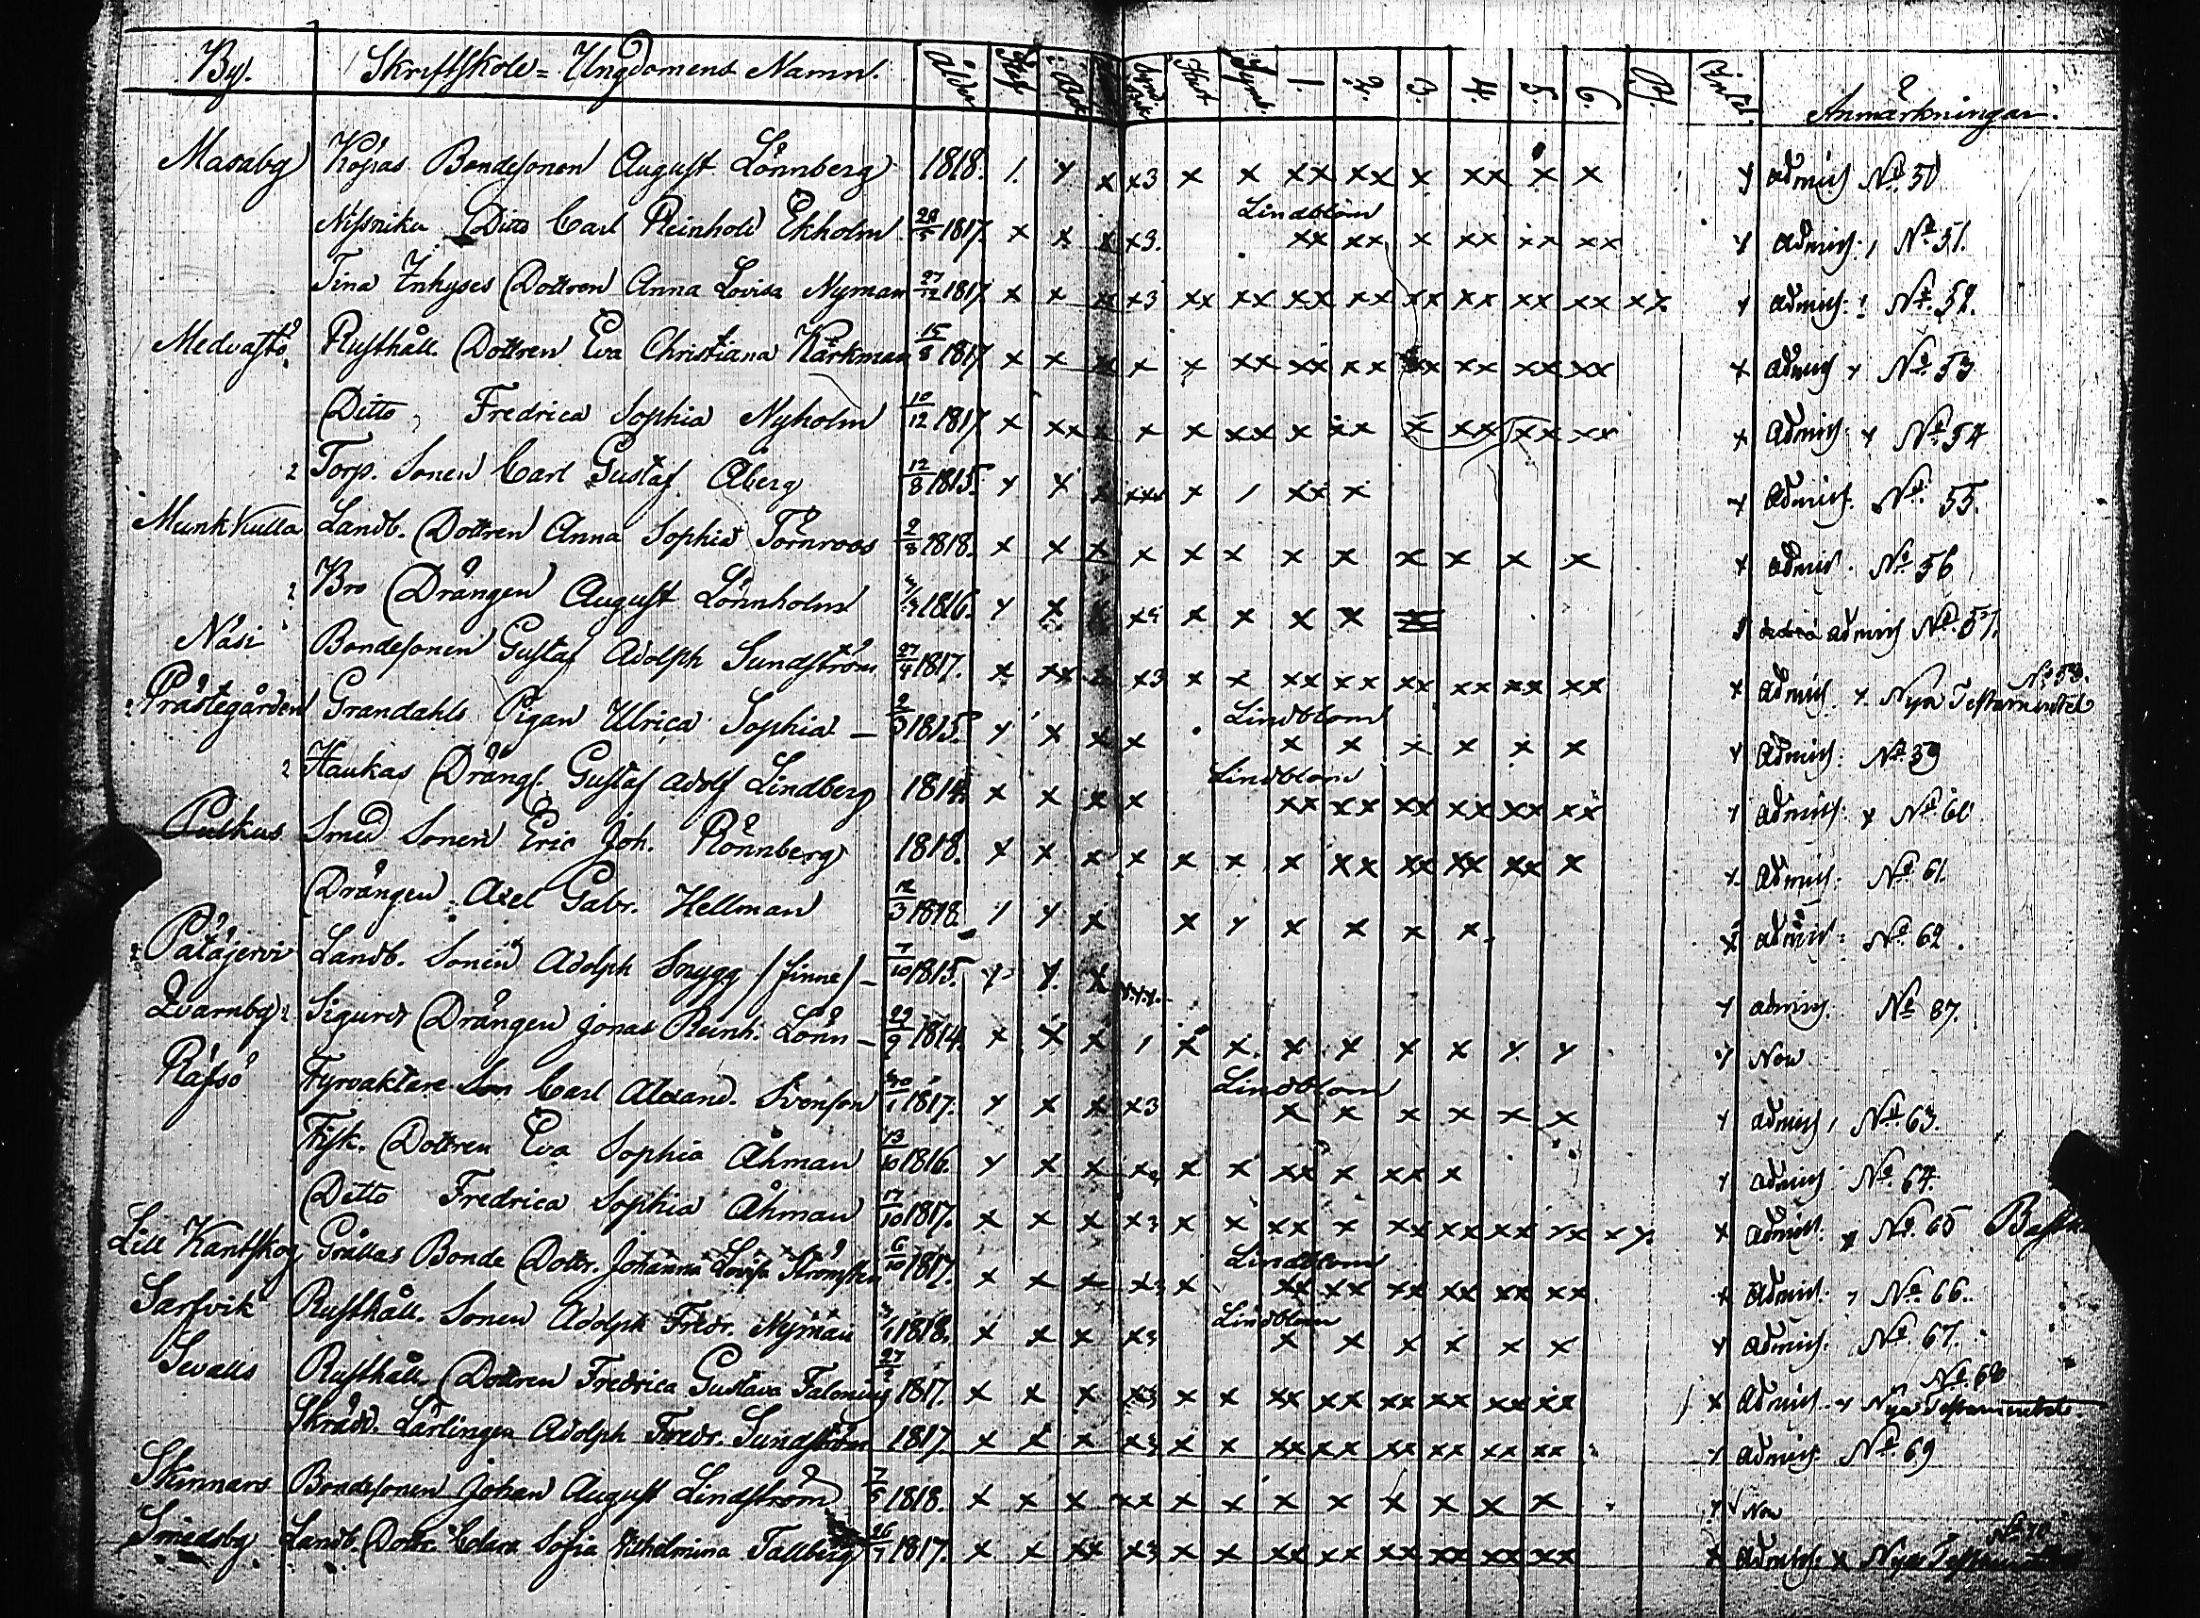 By. Skriftskole = Ungdomens Namn. Ålder Kat. Symb. 1. 2. 3. 4. 5. 6. Anmärkningar.
Masaby Bondesonen August Lönnberg 1818. 1. y x x3 x x xx xx x xx x x y admich No 50
Lindblom
Nissniku Ditto Carl Reinhold Ekholm 28/5 1817. x x x x3. xx xx x xx xx xx y admich. No 51.
Tina Inhyses Dottren Anna Lovisa Nyman 27/12 1817 x x x x3 xx xx xx xx xx xx xx xx xx. y admich: No 52.
Medvastö. Rusthåll. Dottren Eva Christiana Kärkman 15/8 1817 x x x x x xx xx xx xx xx xx xx x admich x No 53
Ditto Fredrica Sophia Nyholm 10/12 1817 x xx x x x xx x xx x xx xx xx x admich. x No 54
2 Torp. Sonen Carl Gustaf Åberg 12/8 1815. y x x xxx x / xx x y admich. No 55.
Munkkulla Landb. Dottren Anna Sophia Törnroos 9/8 1818. x x x x x x x x x x x x x admich. No 56
2 Bro Drängen August Lönnholm 1816. y x x x x x x admich No 57.
No 58.
Näsi Bondesonen Gustaf Adolph Sundström 27/4 1817. x xx x x3 x x xx xx xx xx xx xx x admich. x Nya Testamentet
Lindblom
2 Prästegården Grandahls Pigan Ulrica Sophia — 2/3 1815. y x x x x x x x x x y admich: No 59
Lindblom
2 Haukas Drängs. Gustaf Adolf Lindberg 1814. x x x x xx xx xx xx xx xx y admich: x No 60
Smed Sonen Eric Joh. Rönnberg 1818. x x x x x x x xx xx xx xx x y admich: No 61.
Drängen Axel Gabr. Hellman 12/3 1818. / y x x y x x x x. x admich: No 62.
2 Påtäjervi Landb. Sonen Adolph Snygg /finne/ — 7/10 1815. y y. x y.y.y. y admich. No 87.
Qvarnby 2 Sigurds Drängen Jonas Reinh. Lönn — 29/9 1814. x x x / x x. x x x x y y y Non
Lindblom
Räfsö Fyrvaktare Son Carl Alexand. Svenson 1817. y x x x3 x x x x x x y admich, No 63.
Fisk. Dottren Eva Sophia Åhman 13/10 1816. y x x x x xx x xx x y admich No 64.
Ditto Fredrica Sophia Åhman 17/10 1817. x x x x3 x x xx x xx xx xx xx xy. x admich. x No 65
Lindblom
Lill Kantskog Grällas Bonde Dottr. Johanna Lovisa Strömsten 6/10 1817. x x x x3 x xx xx xx xx xx xx x admich. No 66.
Lindblom
Sarfvik Rusthåll. Sonen Adolph Fredr. Nyman 1818. x x x x3 x x x x x x y admich. No 67.
No 68
Sevalls Rusthåll. Dottren Fredrica Gustava 1817. x x x x3 x x xx xx xx xx xx xx x admich. x Nya Testamentet.
Skrädd. Lärlingen Adolph Fredr. Sundström 1817. x x x x3 x x xx xx xx xx xx xx y admich. No 69
Skinnars Bondesonen Johan August Lindström 7/5 1818. x x x xx x x x x x x x x y Non
No 70
Smedsby Landb. Dottr. Clara Sofia Vilhelmina Tallberg 26/7 1817. x x xx x3 x x xx xx xx xx xx xx x admich. x Nya